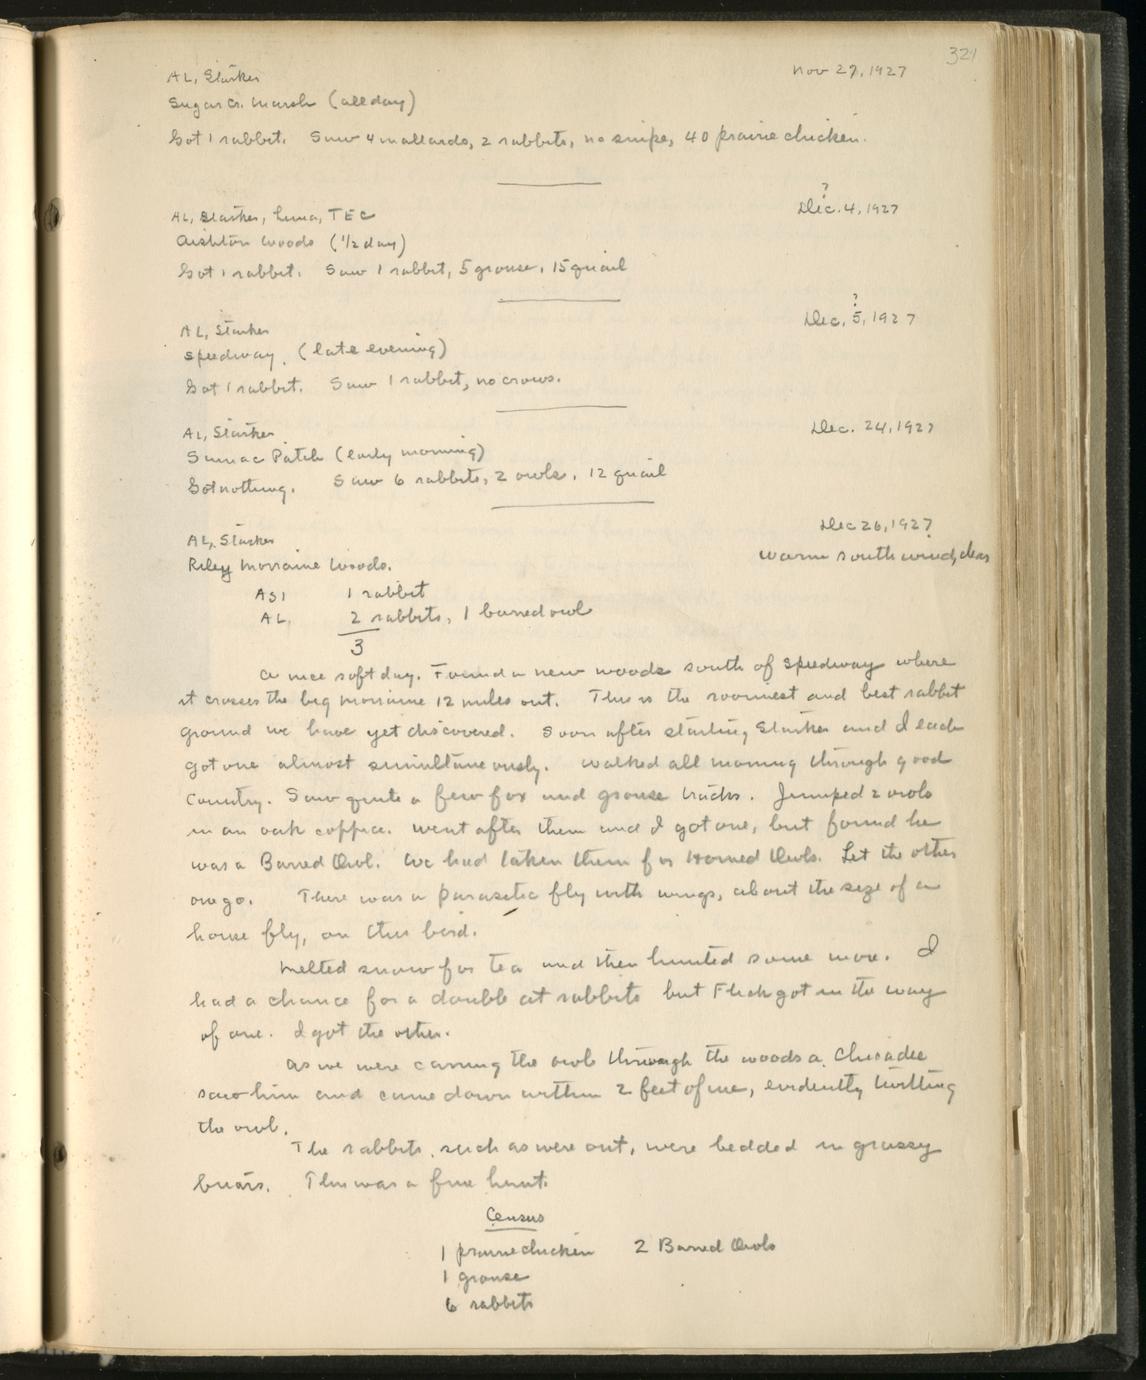 321
AL, Starker Nov 27, 1927
Sugar Cr. Marsh (all day)
Got 1 rabbit. Saw 4 mallards, 2 rabbits, no snipe, 40 prairie chicken.
?
AL, Starker, Luna, TEC Dec. 4, 1927
Ashton Woods (1/2 day)
Got 1 rabbit. Saw 1 rabbit, 5 grouse, 15 quail
?
AL, Starker Dec. 5, 1927
Speedway (late evening)
Got 1 rabbit. Saw 1 rabbit, no crows.
AL, Starker Dec. 24, 1927
Sumac Patch (early morning)
Got nothing. Saw 6 rabbits, 2 owls, 12 quail
Dec 26, 1927
AL, Starker
warm south wind, clear
Riley Morraine Woods.
AS1 1 rabbit
AL 2 rabbits, 1 barred owl
3
A nice soft day. Found a new woods south of Speedway where
it crosses the big morraine 12 miles out. This is the roomiest and best rabbit
ground we have yet discovered. Soon after starting Starker and I each
got one almost simultaneously. Walked all morning through good
country. Saw quite a few fox and grouse tracks. Jumped 2 owls
in an oak coppice. Went after them and I got one, but found he
was a Barred Owl. We had taken them for Horned Owls. Let the other
one go. There was a parasitic fly with wings, about the size of a
house fly, on this bird.
Melted snow for tea and then hunted some more. I
had a chance for a double at rabbits but Flick got in the way
of one. I got the other.
As we were carring the owl through the woods a Chicadee
saw him and came down within 2 feet of me, evidently twitting
the owl.
The rabbits, such as were out, were bedded in grassy
briars. This was a fine hunt.
Census
1 prairie chicken 2 Barred Owls
1 grouse
6 rabbits